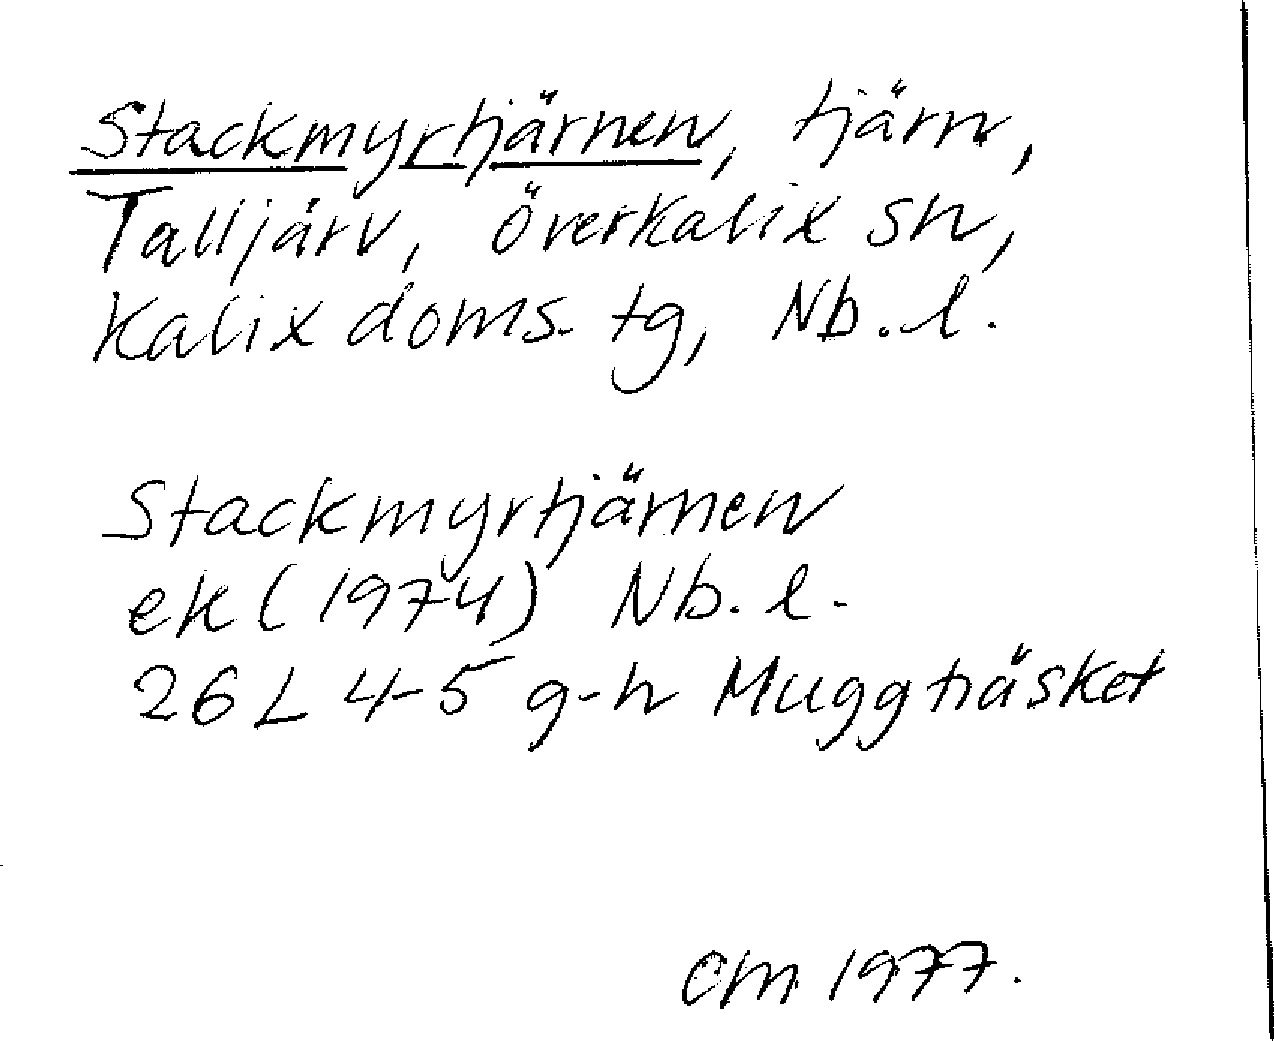 Stackmyrtjärnen, tjärn,
Talljärv, överkalix sn,
Kalix doms. tg, Nb. l.
Stackmyrtjärnen
ek (1974) Nb. l.
26 L 4-5 g-h Muggträsket
CM 1977.